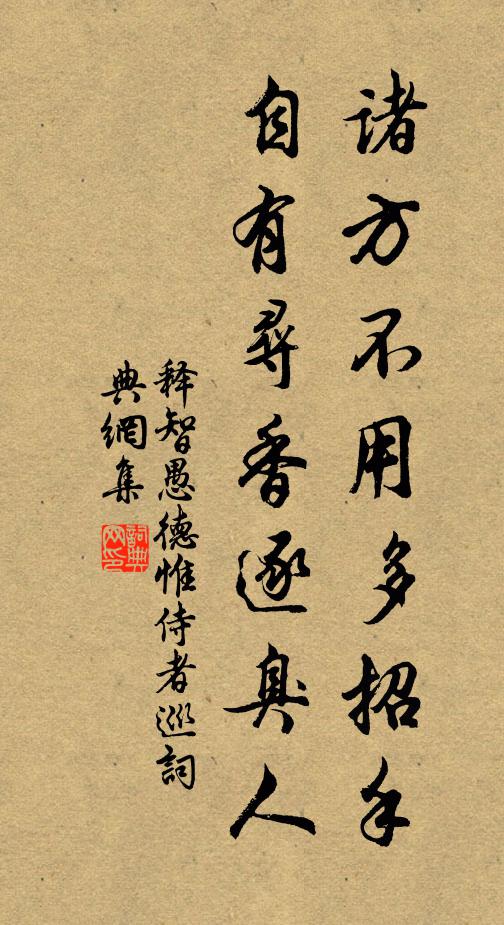 諸方不用多招手
自有尋香逐臭人
释智愚德惟侍者巡詞
典網集
詞典网印